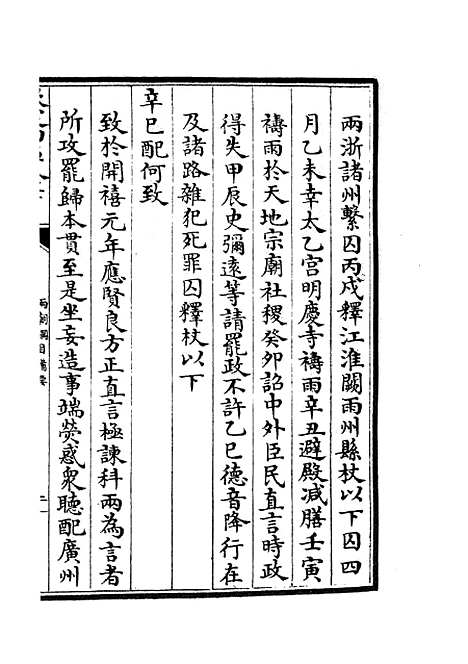 兩浙諸州繫囚丙戌釋江淮闕雨州縣杖以下囚四
月乙未幸太乙宫明慶寺禱雨辛丑避殿减膳壬寅
禱雨於天地宗廟社稷癸卯詔中外臣民直言時政
得失甲辰史彌遠等請罷政不許乙巳德音降行在
及諸路雜犯死罪囚釋杖以下
辛巳配何致
致於開禧元年應賢良方正直言極諫科兩為言者
所攻罷歸本貫至是坐妄造事端熒惑衆聽配廣州
兩朝綱目備要